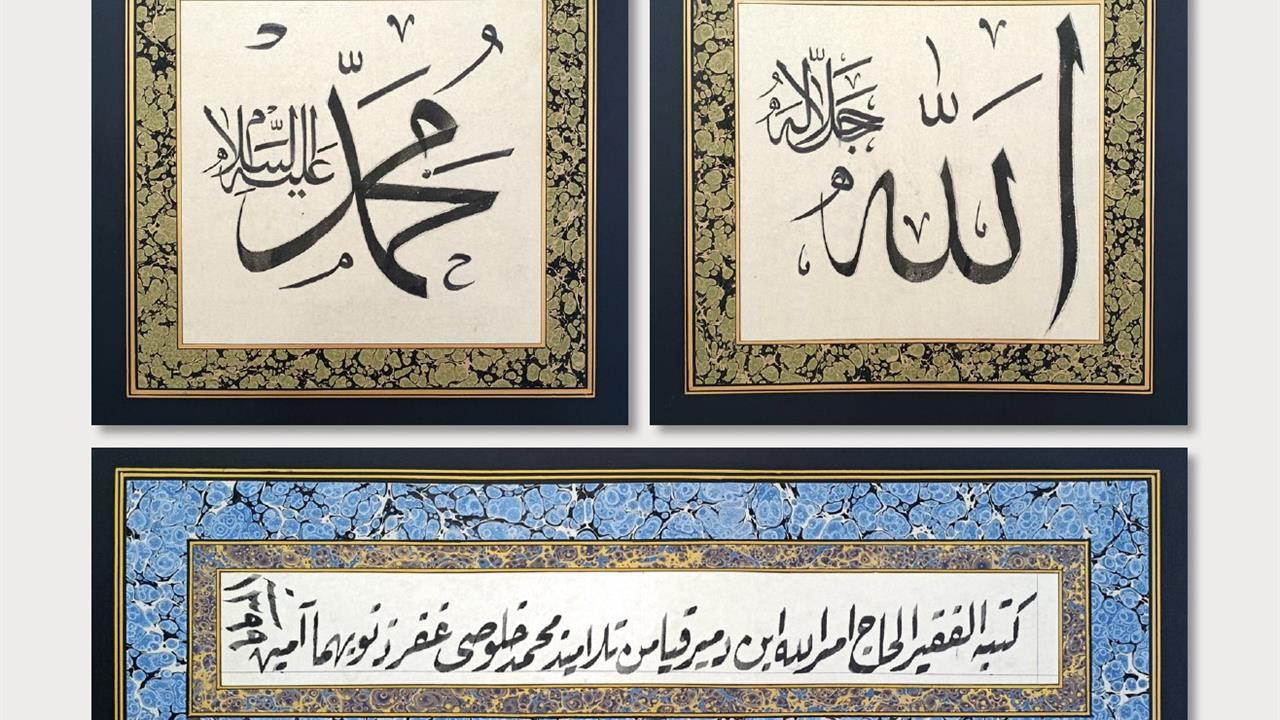 الله جل جلاله
محمد عليه السلام
كتبه الفقير الحاج امر الله ابن دميرقيا من تلاميذ محمد خلوصى غفر ذنوبهما آمين